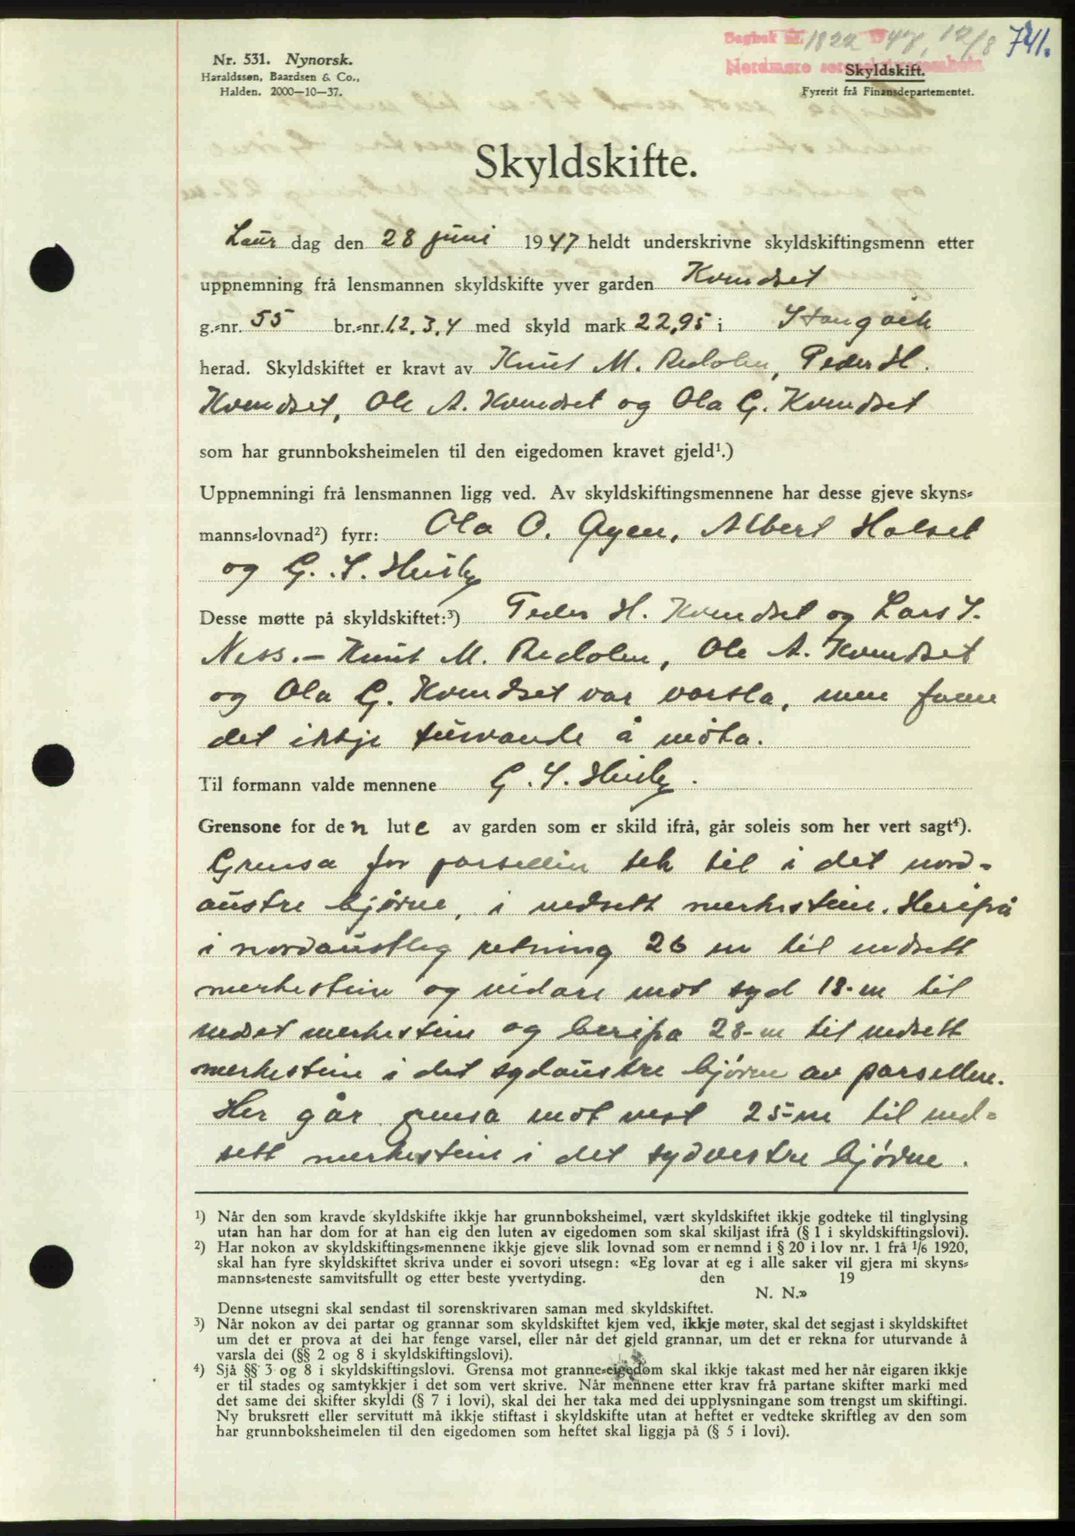 Dagbok nr. 1822 1947, 12/8 741.
Nordmøre sorenskriverembete
Nr. 531. Nynorsk.
Haraldssen, Baardsen & Co.,
Halden. 2000—10—37.
Skyldskift.
Fyrerit frå Finansdepartementet.
Skyldskifte.
Laur dag den 28 juni 1947 heldt underskrivne skyldskiftingsmenn etter
uppnemning frå lensmannen skyldskifte yver garden Kvendset
g.-nr. 55 br.-nr. 1.2.3.4 med skyld mark 22,95 i Stangvik
herad. Skyldskiftet er kravt av Knut M. Redalen, Peder H.
Kvendset, Ole A. Kvendset og Ola G. Kvendset
som har grunnboksheimelen til den eigedomen kravet gjeld¹.)
Uppnemningi frå lensmannen ligg ved. Av skyldskiftingsmennene har desse gjeve skyns-
manns-lovnad²) fyrr: Ola O. Øyen, Albert Halset
og G. S. Husby
Desse møtte på skyldskiftet:³) Peder H. Kvendset og Lars S.
Ness. — Knut M. Redalen, Ole A. Kvendset
og Ola G. Kvendset var varsla, men fann
det ikkje turvande å møta.
Til formann valde mennene G. S. Husby.
Grensone for den lute av garden som er skild ifrå, går soleis som her vert sagt⁴).
Grensa for parsellen tek til i det nord-
austre hjørne, i nedsett merkestein. Herifrå
i nordaustleg retning 26 m til nedsett
merkestein og vidare mot syd 18-m til
nedset merkestein og herifrå 28-m til nedsett
merkestein i det sydaustre hjørne av parsellen.
Her går grensa mot vest 25-m til ned-
sett merkestein i det sydvestre hjørne.
¹) Når den som kravde skyldskifte ikkje har grunnboksheimel, vært skyldskiftet ikkje godteke til tinglysing
utan han har dom for at han eig den luten av eigedomen som skal skiljast ifrå (§ 1 i skyldskiftingslovi).
²) Har nokon av skyldskiftings-mennene ikkje gjeve slik lovnad som er nemnd i § 20 i lov nr. 1 frå 1/6 1920,
skal han fyre skyldskiftet skriva under ei sovori utsegn: «Eg lovar at eg i alle saker vil gjera mi skyns-
manns-teneste samvitsfullt og etter beste yvertyding. den 19
N. N.»
Denne utsegni skal sendast til sorenskrivaren saman med skyldskiftet.
³) Når nokon av dei partar og grannar som skyldskiftet kjem ved, ikkje møter, skal det segjast i skyldskiftet
um det er prova at dei har fenge varsel, eller når det gjeld grannar, um det er rekna for uturvande å
varsla dei (§§ 2 og 8 i skyldskiftingslovi).
⁴) Sjå §§ 3 og 8 i skyldskiftingslovi. Grensa mot granne-eigedom skal ikkje takast med her når eigaren ikkje
er til stades og samtykkjer i det som vert skrive. Når mennene etter krav frå partane skifter marki med
det same dei skifter skyldi (§ 7 i lovi), skal dei her taka med dei upplysningane som trengst um skiftingi.
Ny bruksrett eller servitutt må ikkje stiftast i skyldskifte utan at heftet er vedteke skriftleg av den som
har grunnboksheimelen til den eigedomen som heftet skal liggja på (§ 5 i lovi).